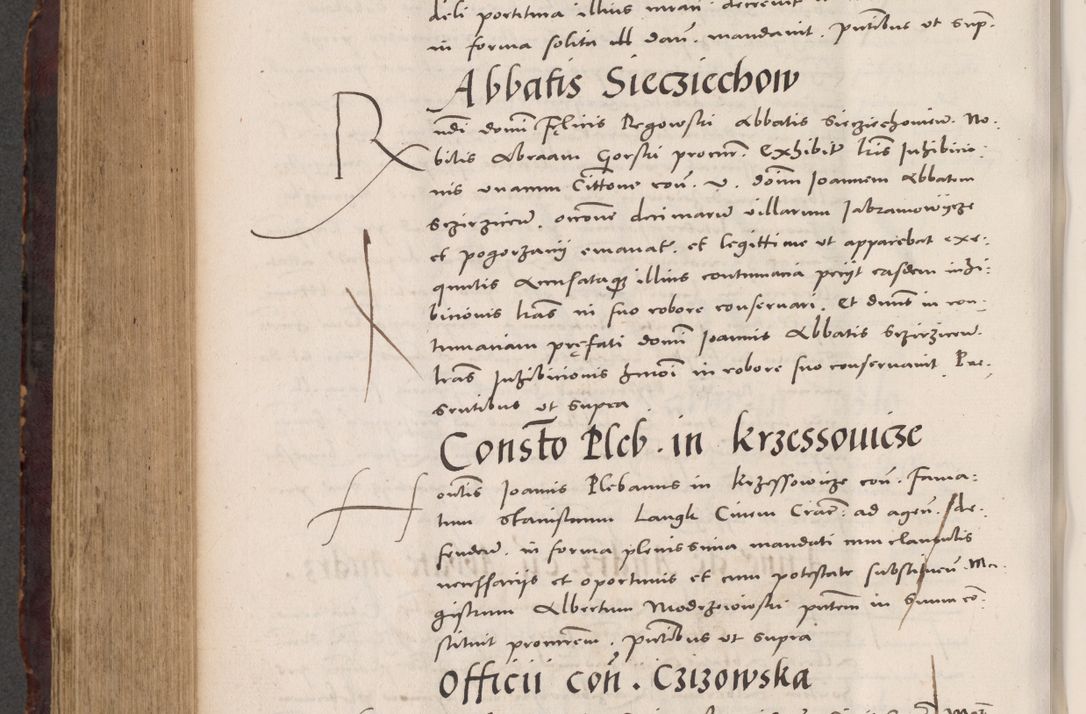 deli portitura illius iuran decrevit
in forma solita ill dan. mandavit. pntibus ut sup.
Abbatis Sieczechow
Rndi domi Felicis Regowski Abbatis Sieczechovien. No-
bilis Abraam Gorski procur. Exhibit lras Inhibicio-
nis unacum Cittone con. v. domi Joannem Abbatem
Sczirzicen. occone decimarum villarum Jabranowycze
et pogorzani emanat. et legittime ut apparebat exe-
quntis Accusataqz illius contumacia petiit easdem inhi-
bicionis lras in suo robore conservari. Et dnus in con-
tumaciam prefati domi Joannis Abbatis Sczirzicen.
lras Inhibicionis hmoi in robore suo conservavit. Pre-
sentibus ut supra
Constto Pleb. in krzessowicze
Hontis Joannis Plebanus in krzessowicze con. Fama-
tum Stanislaum Langk Civem Crac. ad agen. /de-
fenden. in forma plenissima mandati cum clausulis
necessariis et oportunis et cum potestate substituen. Ma-
gistrum Albertum Modrzewiowski pntem in suum con-
stituit procurem. pntibus ut supra
Officii con. Czizowska